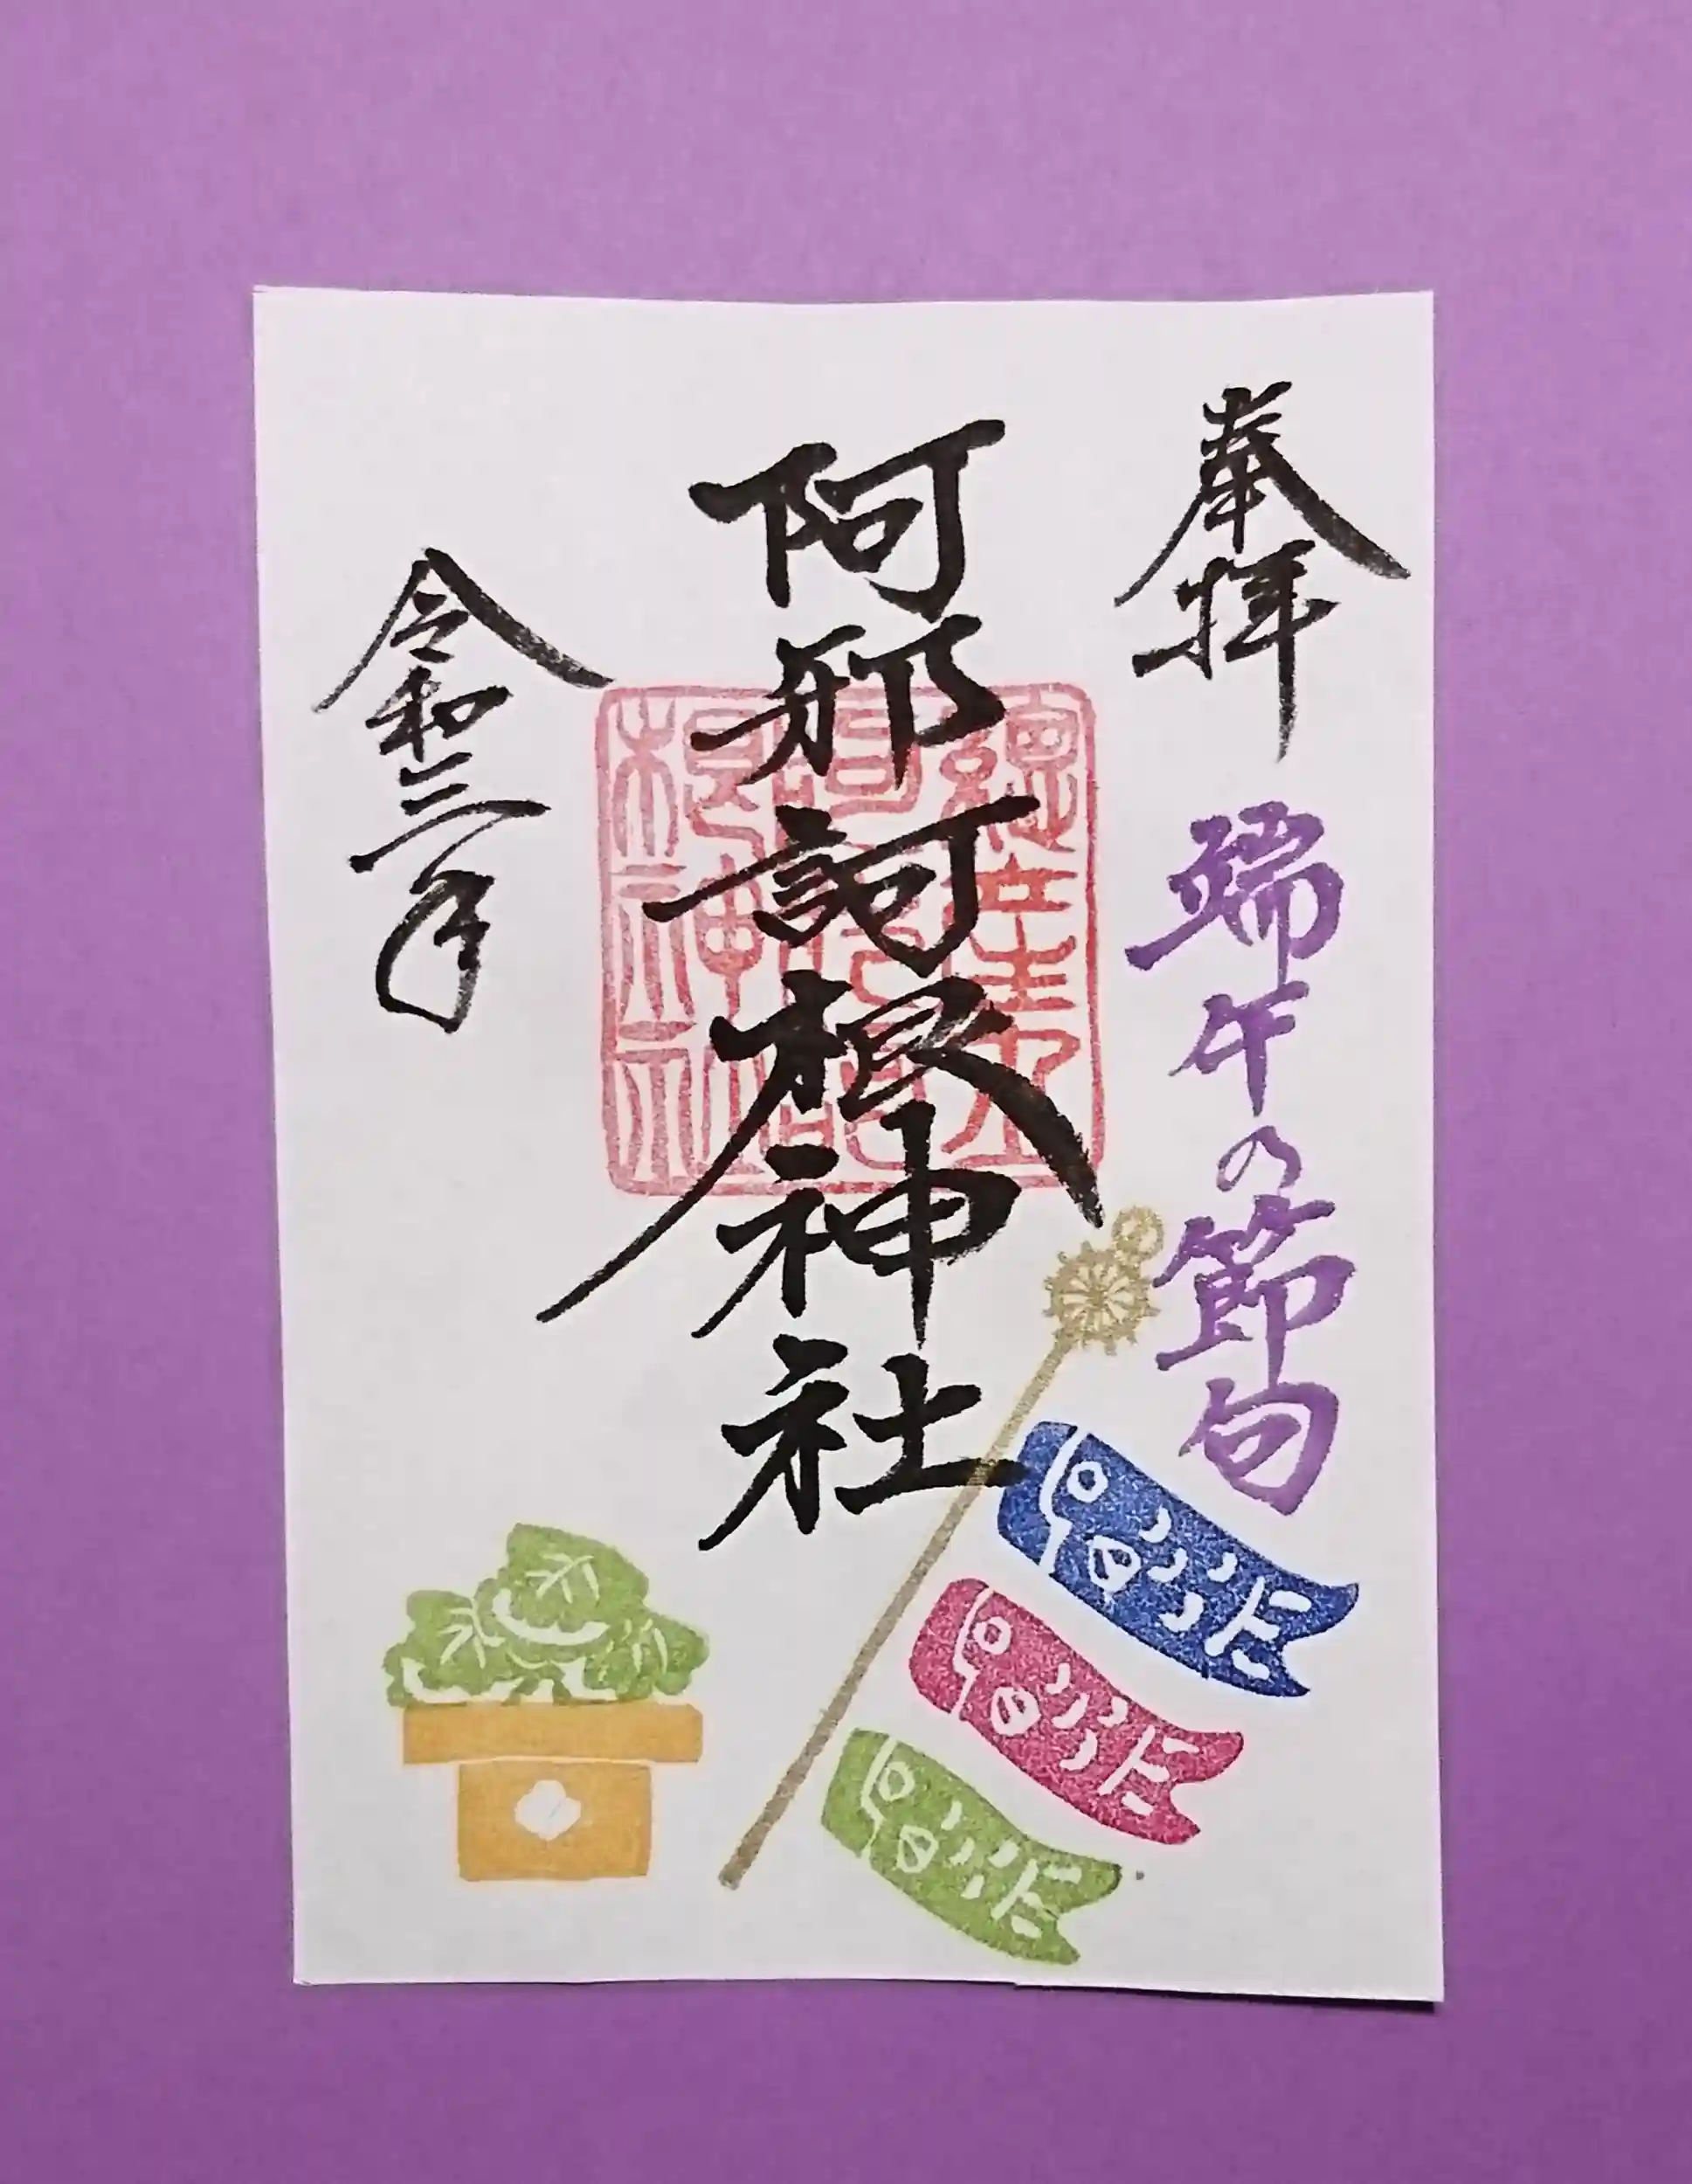 奉拝
端午の節句
阿邪訶根神社
令和三年